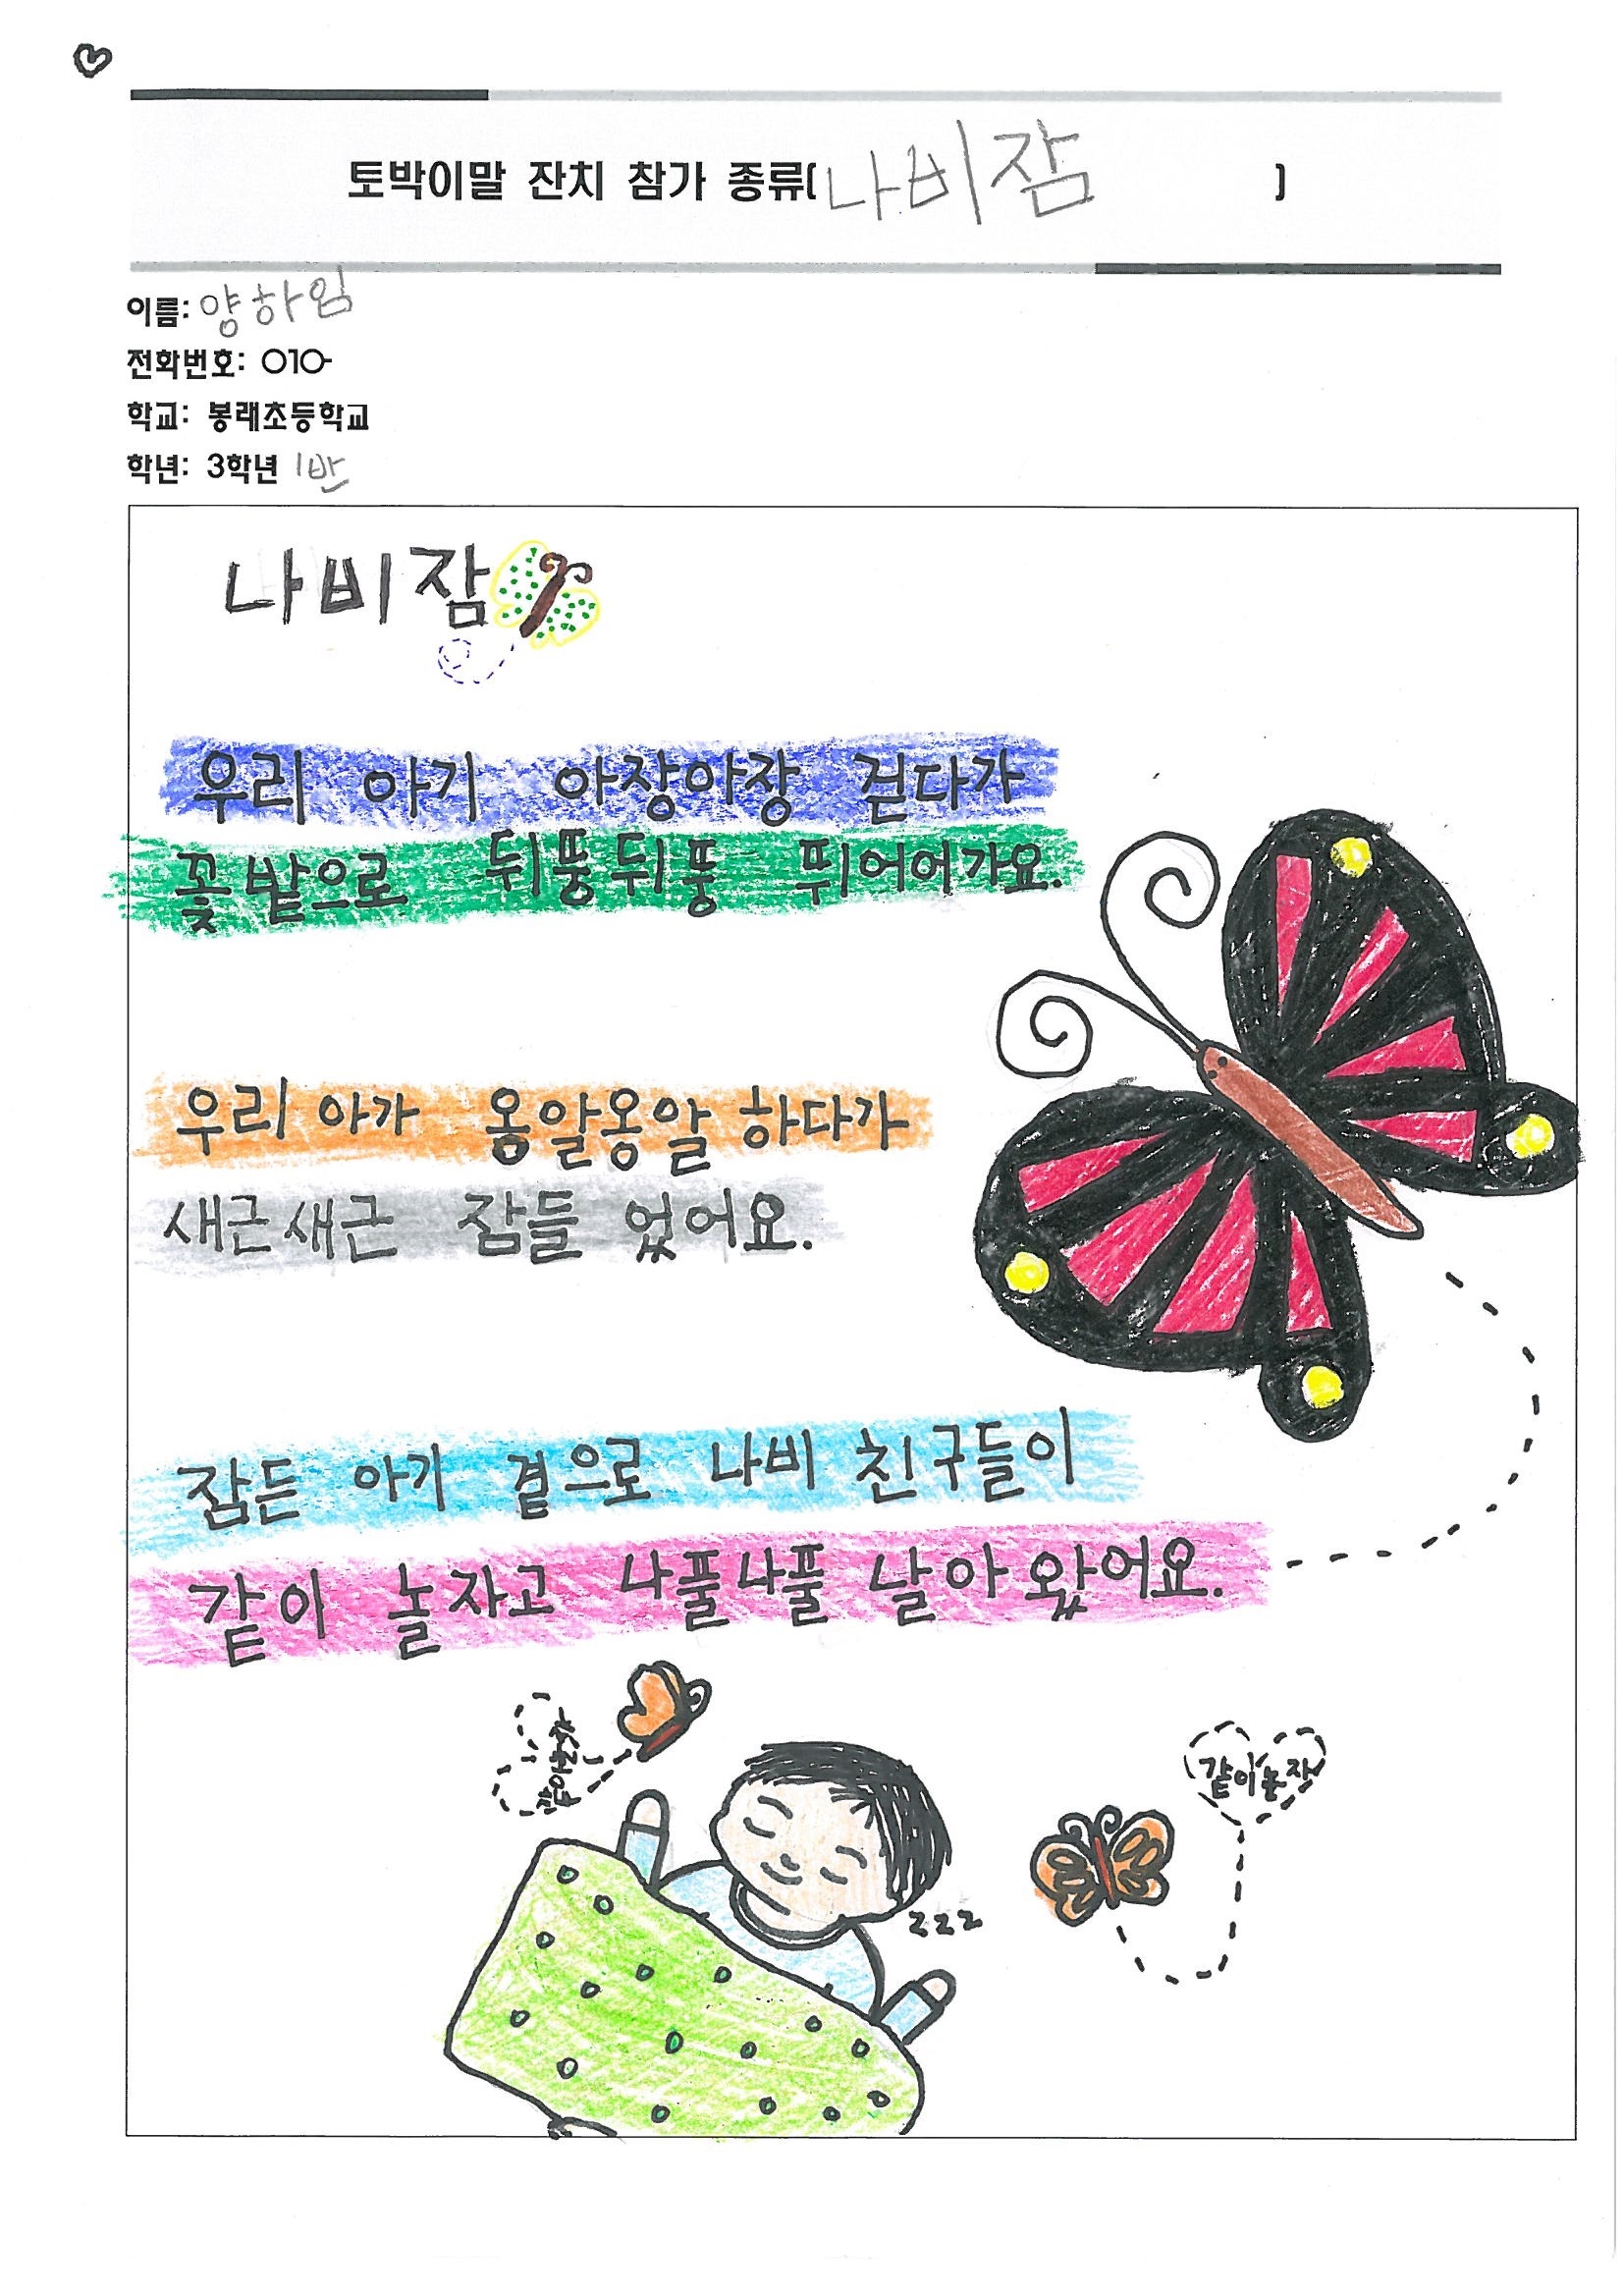 토박이말 잔치 참가 종류(나비잠 )
이름: 양하임
전화번호: 010-
학교: 봉래초등학교
학년: 3학년 1반
나비잠
우리 아기 아장아장 걷다가
꽃밭으로 뒤뚱뒤뚱 뛰어어가요.
우리 아가 옹알옹알 하다가
새근새근 잠들 었어요.
잠든 아기 곁으로 나비 친구들이
같이 놀자고 나풀나풀 날아 왔어요.
같이놀자
zzz